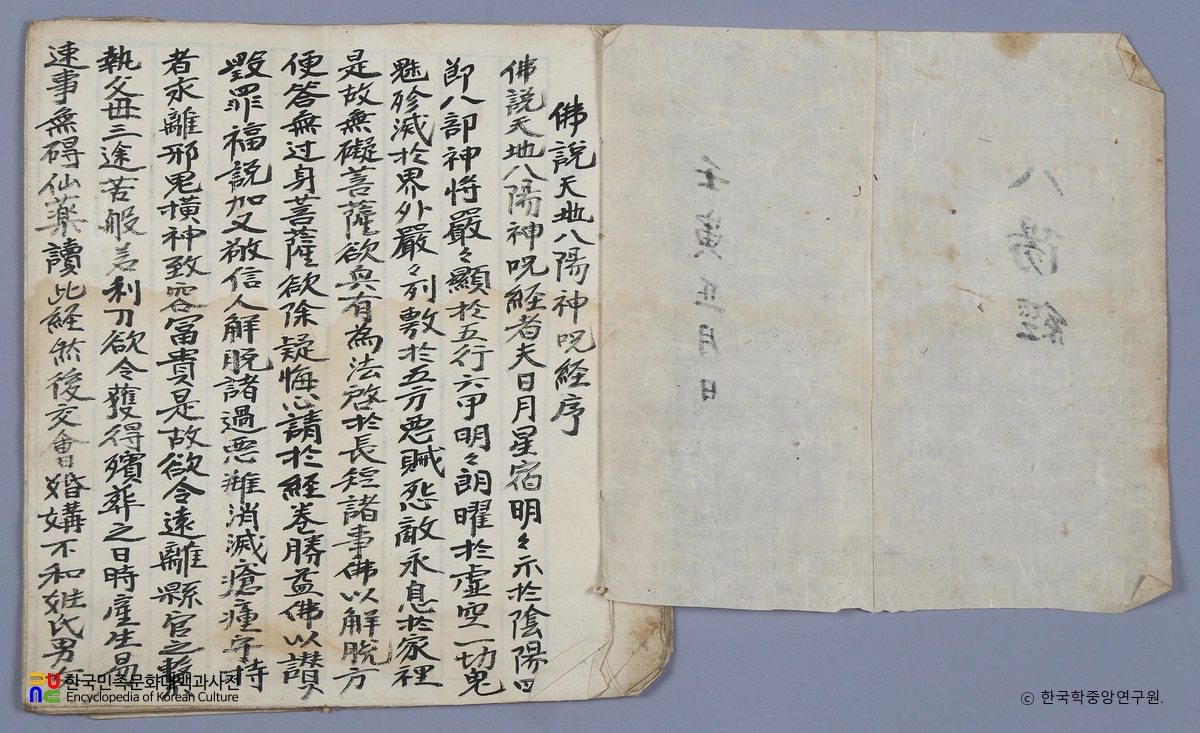 八陽經
壬寅正月日
佛說天地八陽神呪経序
佛說天地八陽神呪経者夫日月星宿明々示於陰陽四
節八部神將嚴々顯於五行六甲明々朗曜於虛空一切鬼
魅殄滅於界外嚴々列敷於五方惡賊怨敵永息於家裡
是故無礙菩薩欲與有為法啓於長短諸事佛以解脫方
便答無过身菩薩欲除疑悔心請於経卷勝益佛以讃
毀罪福說加又敬信人解脫諸過惡難消滅瘡瘇守持
者永離邪鬼橫神致容富貴是故欲令遠離縣官之繫
執父母三途苦般若利刀欲令獲得殯葬之日時産生易
速事無碍仙藥讀此経然後交會婚媾不和姓氏男女
한국민족문화대백과사전
Encyclopedia of Korean Culture
ⓒ 한국학중앙연구원.